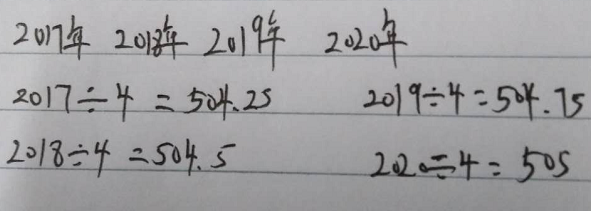 2017年 2018年 2019年 2020年
2017÷4=504.25 2019÷4=504.75
2018÷4=504.5 2020÷4=505